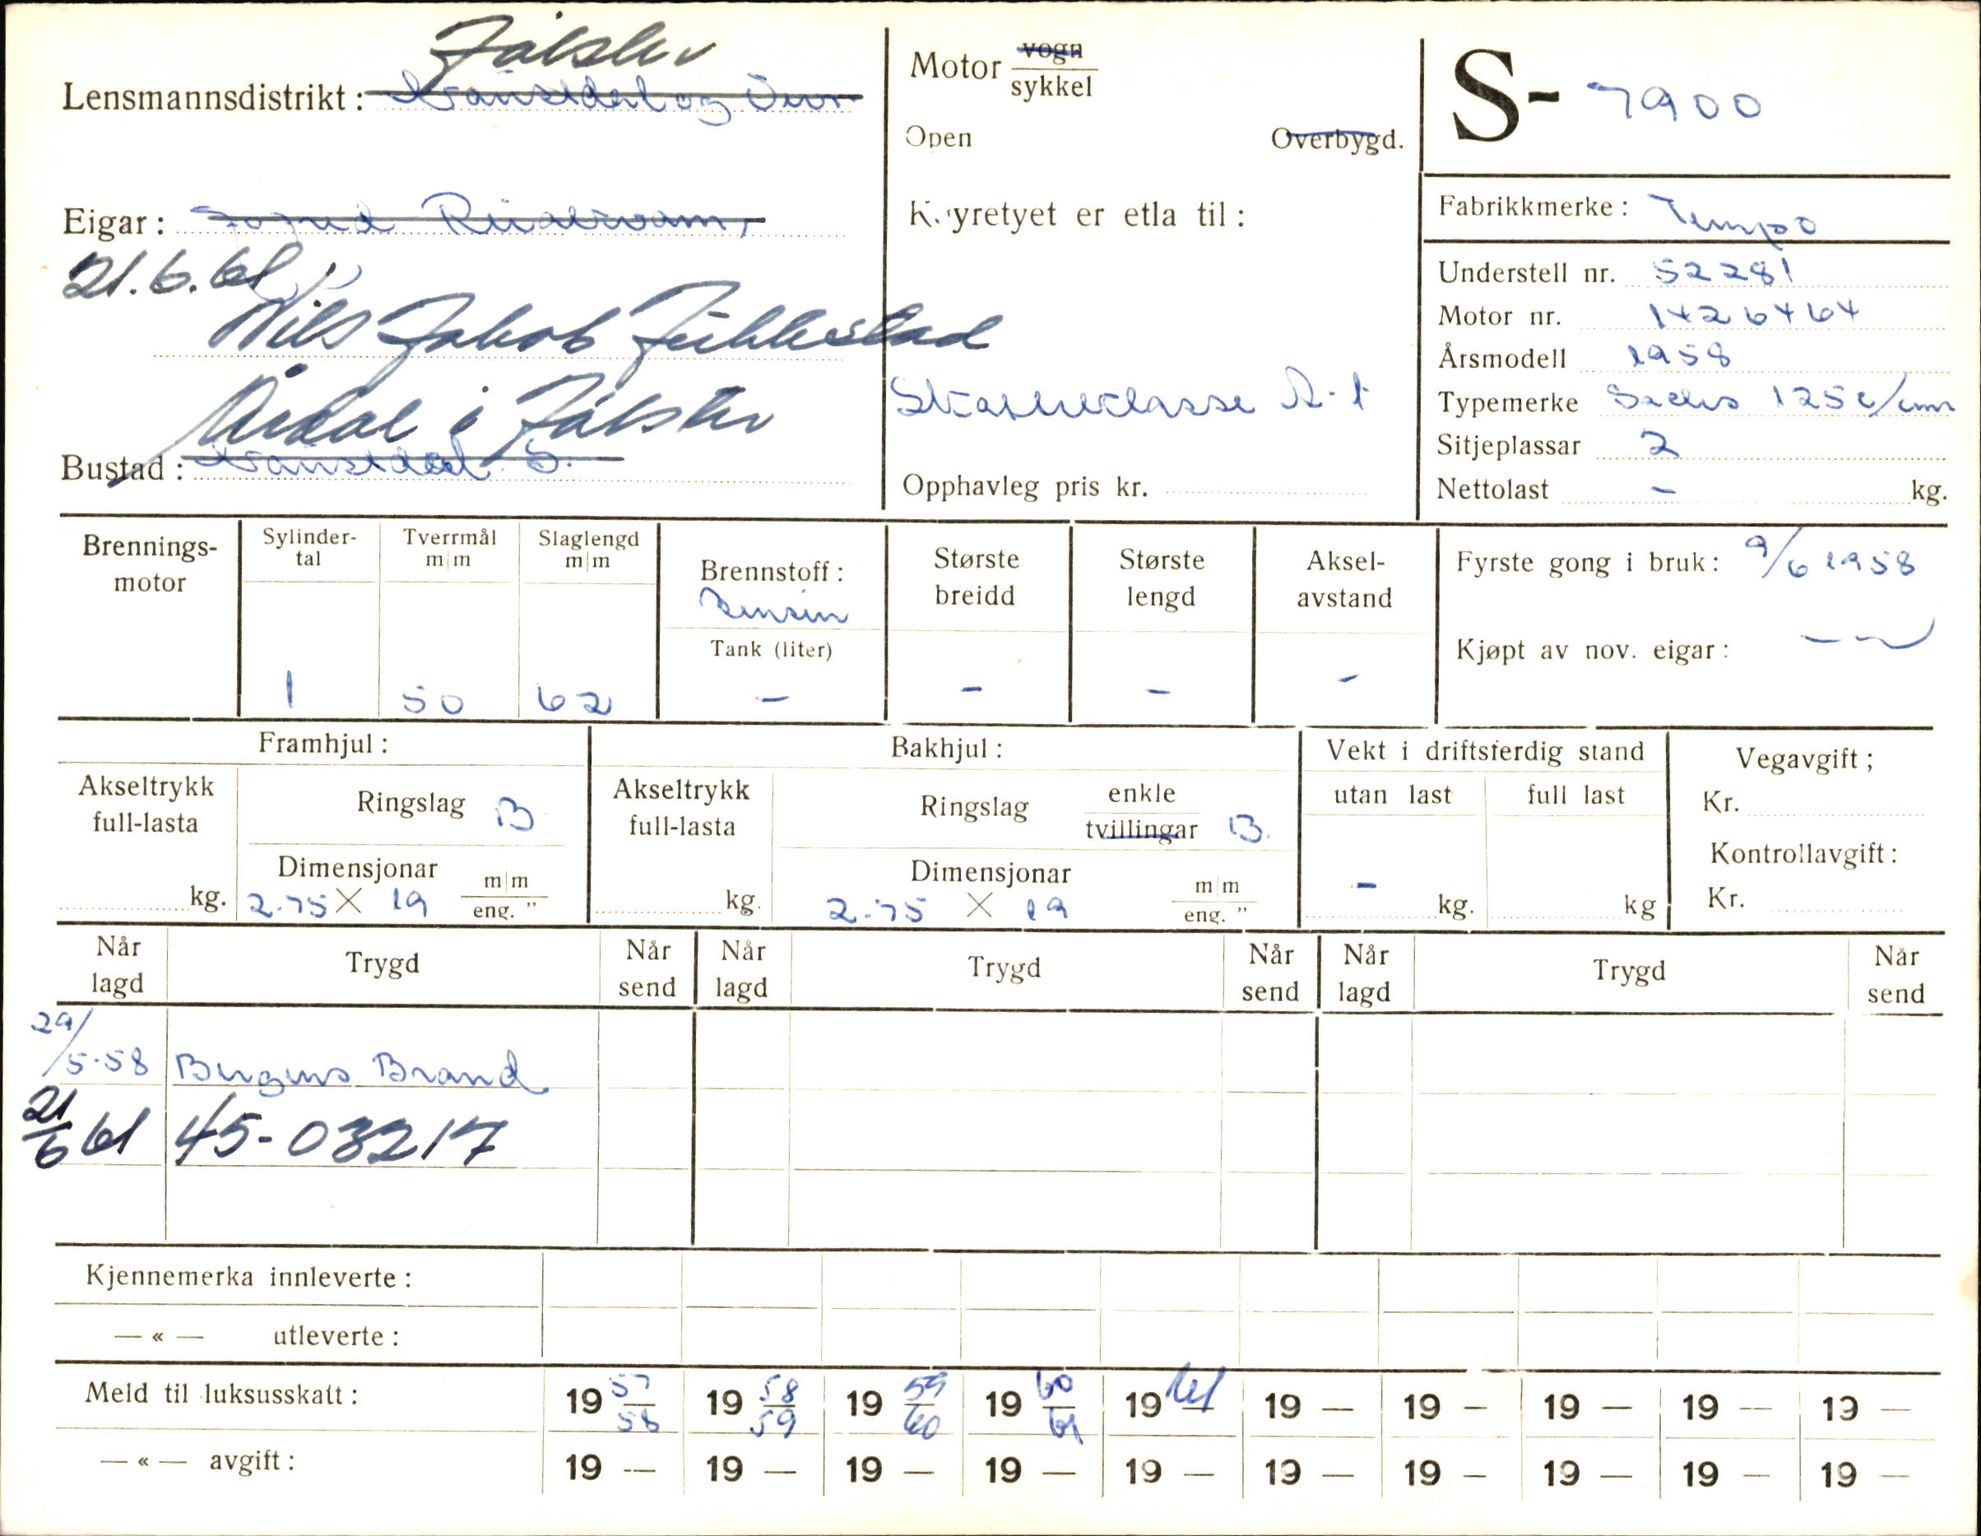 Jølster
Lensmannsdistrikt:
Eigar:
21.6.61
Nils Jakob
Årdal i Jølster
Bustad:
Motor vogn
sykkel
Open Overbygd.
Køyretyet er etla til:
Skatteklasse A-1
Opphavleg pris kr.
S- 7900
Fabrikkmerke: Tempo
Understell nr. 52281
Motor nr. 1426464
Årsmodell 1958
Typemerke Sachs 125 c/cm
Sitjeplassar 2
Nettolast - kg.
Brennings-motor
Sylinder-tal 1
Tverrmål m|m 50
Slaglengd m|m 62
Brennstoff: Bensin
Tank (liter) -
Største breidd -
Største lengd -
Aksel-avstand -
Fyrste gong i bruk: 9/6 1958
Kjøpt av nov. eigar:
Framhjul:
Akseltrykk full-lasta kg.
Ringslag B
Dimensjonar 2.75 X 19 m|m eng. "
Bakhjul:
Akseltrykk full-lasta kg.
Ringslag enkle tvillingar B.
Dimensjonar 2.75 X 19 m|m eng. "
Vekt i driftsferdig stand
utan last - kg.
full last kg
Vegavgift;
Kr.
Kontrollavgift:
Kr.
Når lagd Trygd Når send Når lagd Trygd Når send Når lagd Trygd Når send
29/5-58 Bergens Brand
21/6 61 45-03217
Kjennemerka innleverte:
— « — utleverte:
Meld til luksusskatt: 19 57/58 19 58/59 19 59/60 19 60/61 19 61 19 — 19 — 19 — 19 — 19 —
— « — avgift: 19 — 19 — 19 — 19 — 19 — 19 — 19 — 19 — 19 — 19 —